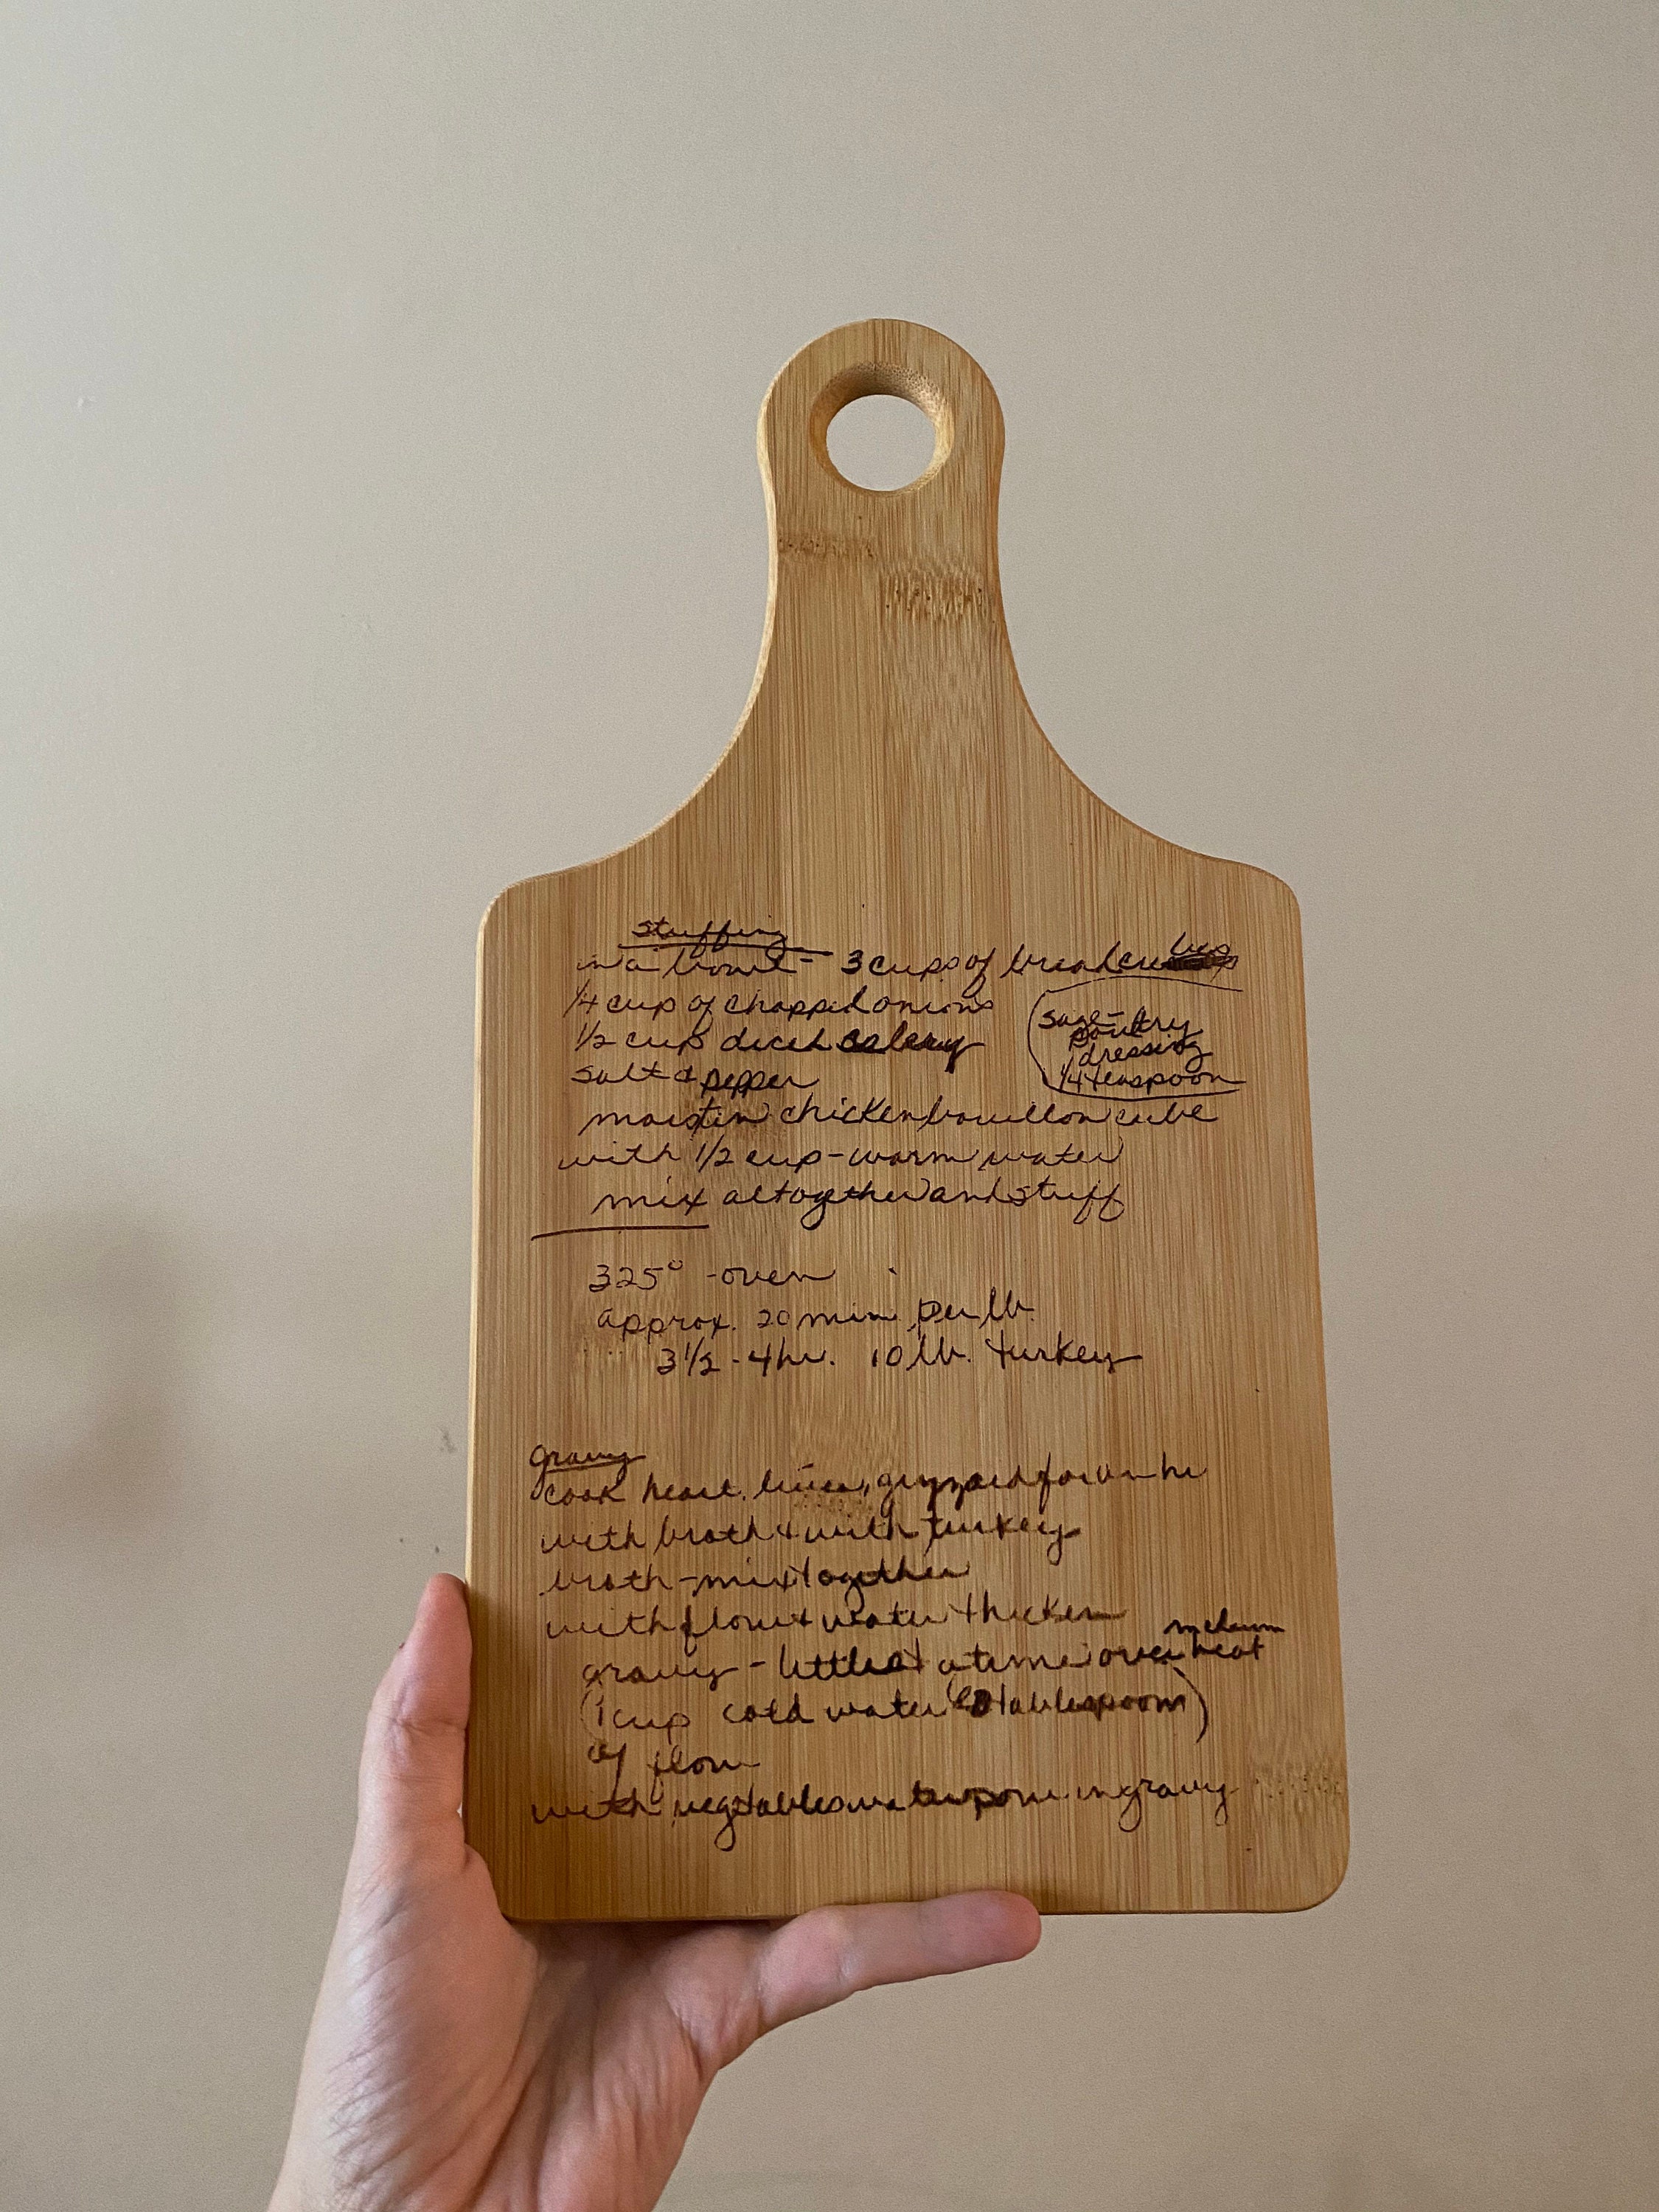 stuffing
in a bowl - 3 cups of bread cubes
1/4 cup of chopped onions
1/2 cup diced celery
salt & pepper
sage - poultry
dressing
1/4 teaspoon
moistin chicken bouillon cube
with 1/2 cup - warm water
mix altogether and stuff
325° - oven
approx. 20 min per lb.
3 1/2 - 4 hr. 10 lb. turkey
gravy
cook heart, liver, gizzard for an hr
with broth & with turkey
broth - mix together
with flour & water thicken
gravy - little at a time over medium heat
(1 cup cold water tablespoon)
of flour
with vegetables water pour in gravy